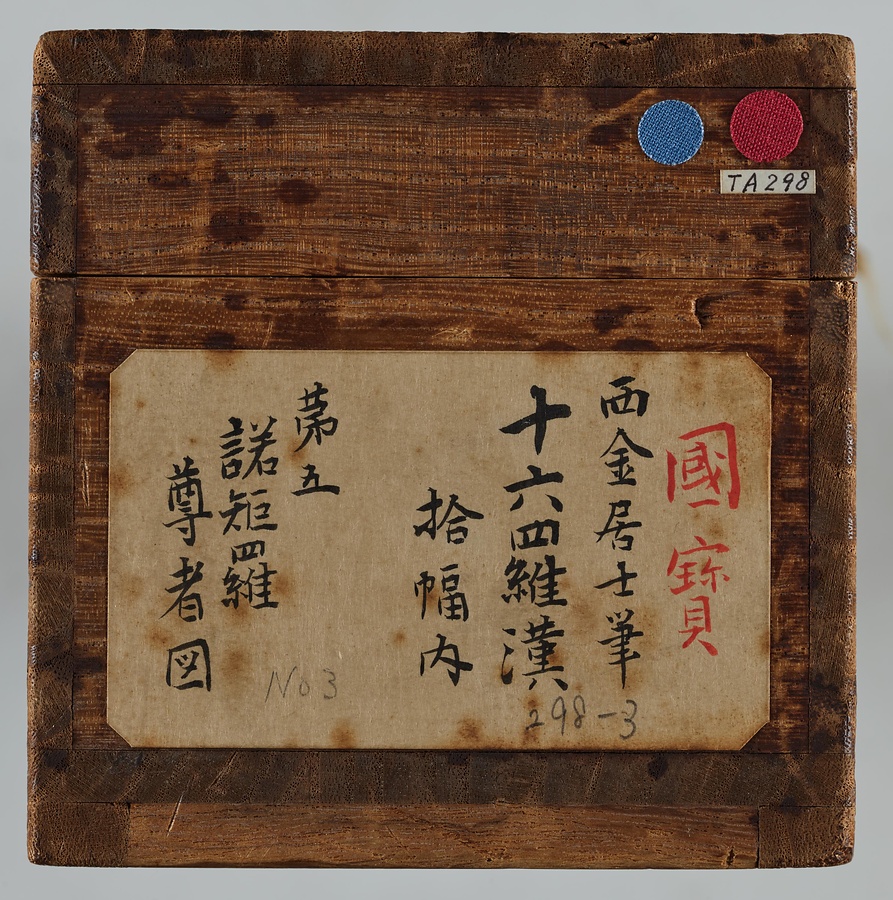 TA298
國寶
西金居士筆
十六羅漢
拾幅内
第五
諾矩羅
尊者図
No 3
298-3